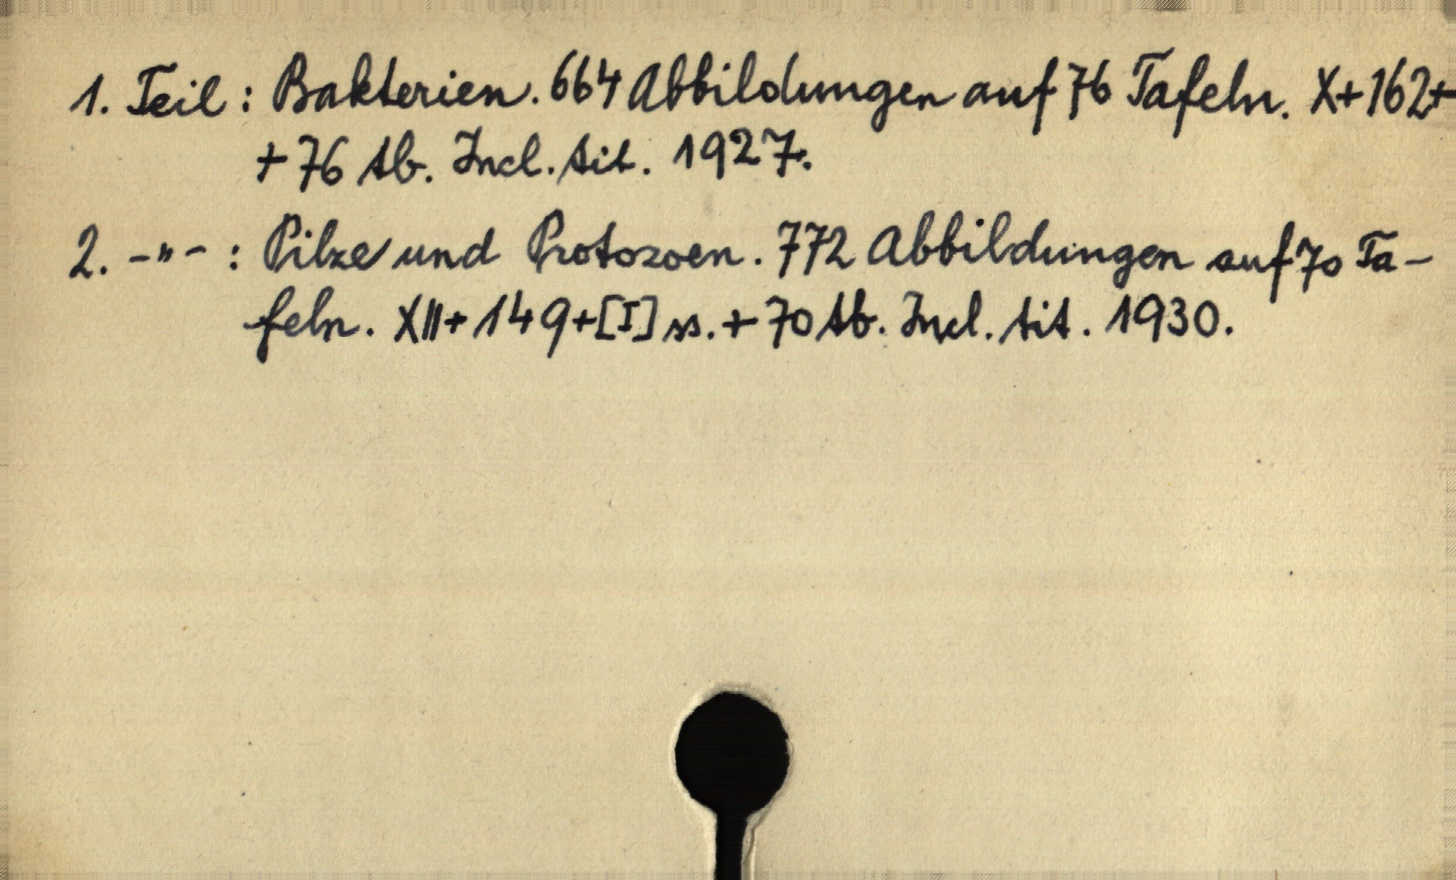 1. Teil : Bakterien. 664 Abbildungen auf 76 Tafeln. X+162+
+ 76 tb. Incl. tit. 1927.
2. -"- : Pilze und Protozoen. 772 Abbildungen auf 70 Ta-
feln. XII+149+[I] ss. + 70 tb. Incl. tit. 1930.